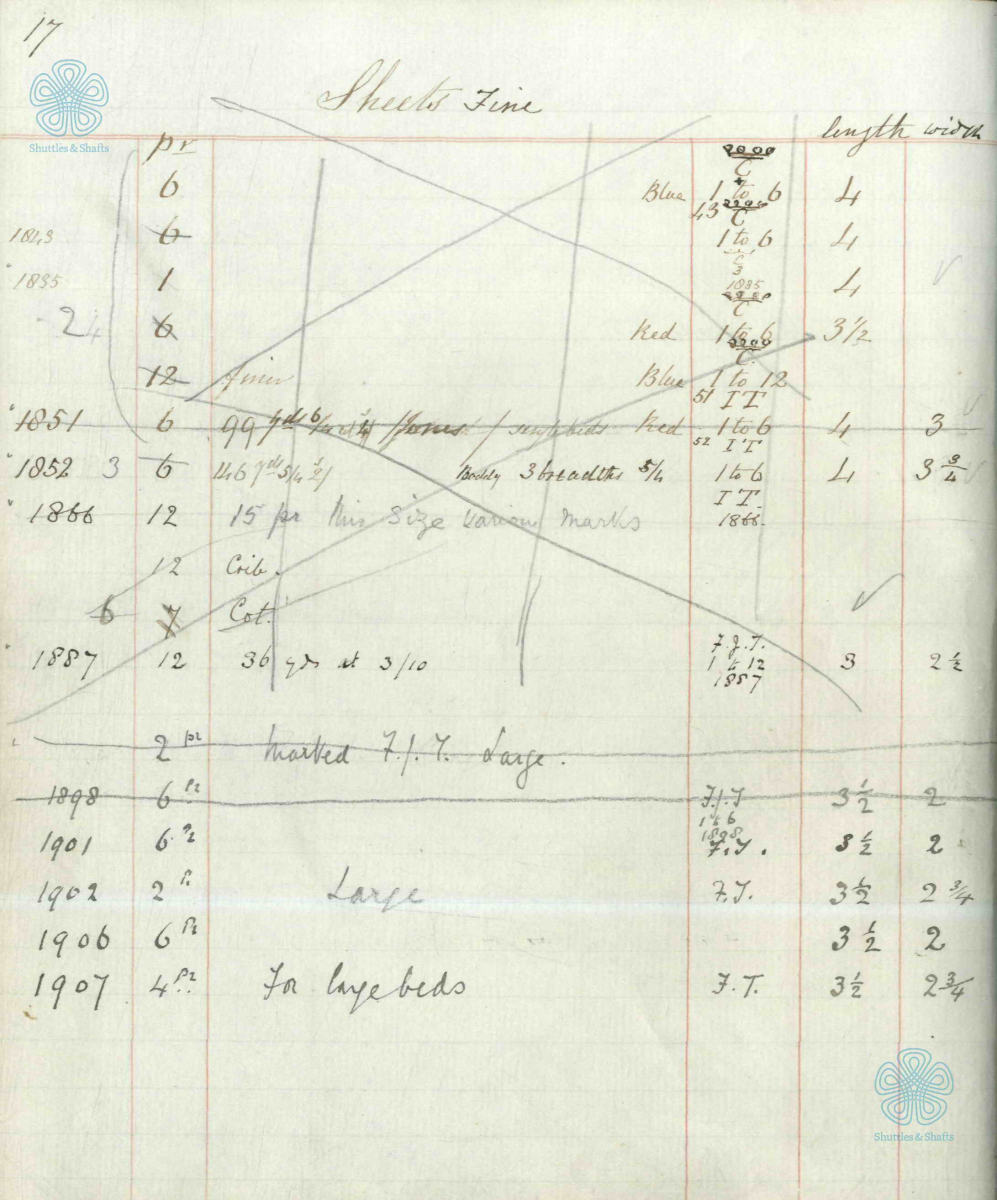 17
Shuttles & Shafts
Sheets Fine
length width
pr
C
6 Blue 1 to 6 4
43 C
1843 6 1 to 6 4
C
3
1835 1 1835 4
C
24 6 Red 1 to 6 3 1/2
C.
12 finer Blue 1 to 12
51 I T
1851 6 99 yds Red 1 to 6 4 3
52 I T
1852 3 6 146 yds 5/4 3 breadths 5/4 1 to 6 4 3 3/4
I T.
1866 12 15 pr this size various marks 1866.
12 Crib.
6 7 Cot.
F.J.T.
1887 12 36 yds at 3/10 1 to 12 3 2 1/2
1887
2 pr marked F.J.T. Large.
1898 6 Pr F.J.T 3 1/2 2
1 to 6
1898
1901 6 Pr F.T. 3 1/2 2
1902 2 Pr Large F.T. 3 1/2 2 3/4
1906 6 Pr 3 1/2 2
1907 4 Pr For large beds F.T. 3 1/2 2 3/4
Shuttles & Shafts